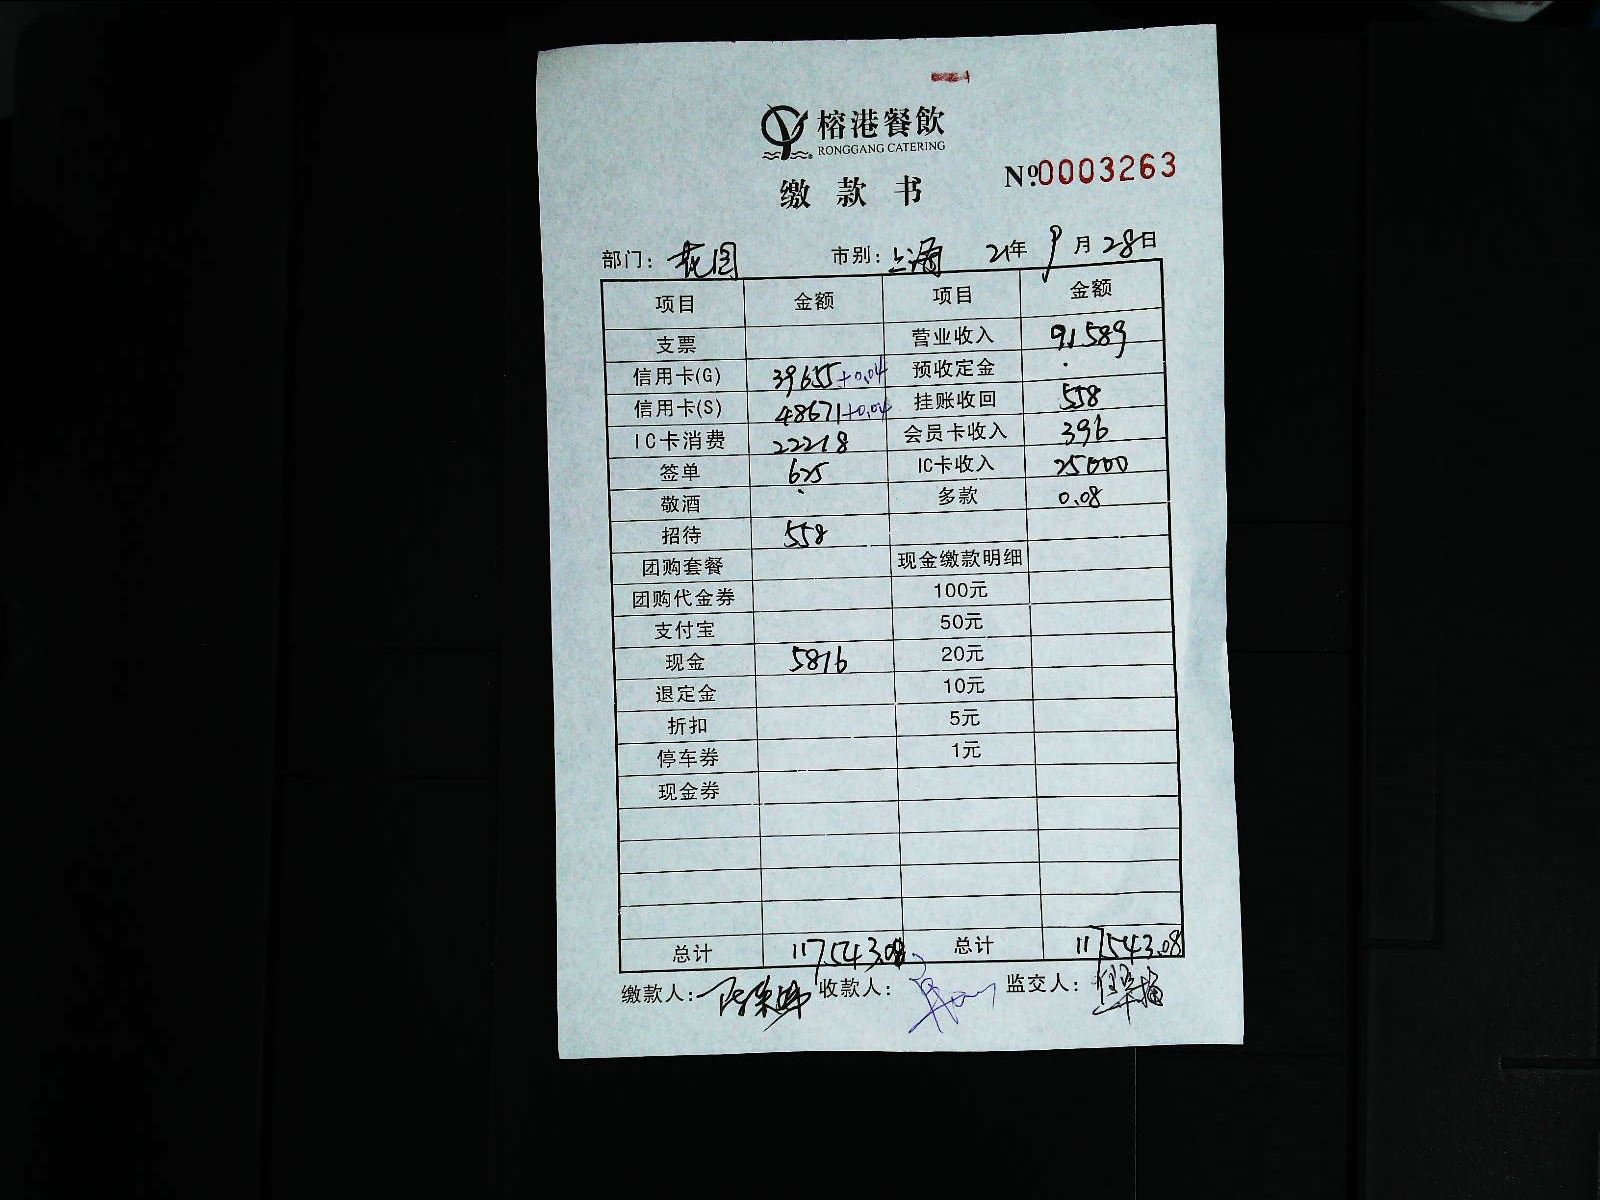 榕港餐飲
RONGGANG CATERING
缴款书
№0003263
部门: 花园 市别: 上海 21年 9月 28日
项目 金额 项目 金额
支票 营业收入 91589
信用卡(G) 39655+0.04 预收定金 .
信用卡(S) 48671+0.04 挂账收回 558
IC卡消费 22218 会员卡收入 396
签单 625 IC卡收入 25000
敬酒 . 多款 0.08
招待 558
团购套餐 现金缴款明细
团购代金券 100元
支付宝 50元
现金 5816 20元
退定金 10元
折扣 5元
停车券 1元
现金券
总计 117543.08 总计 117543.08
缴款人: 收款人: 监交人: